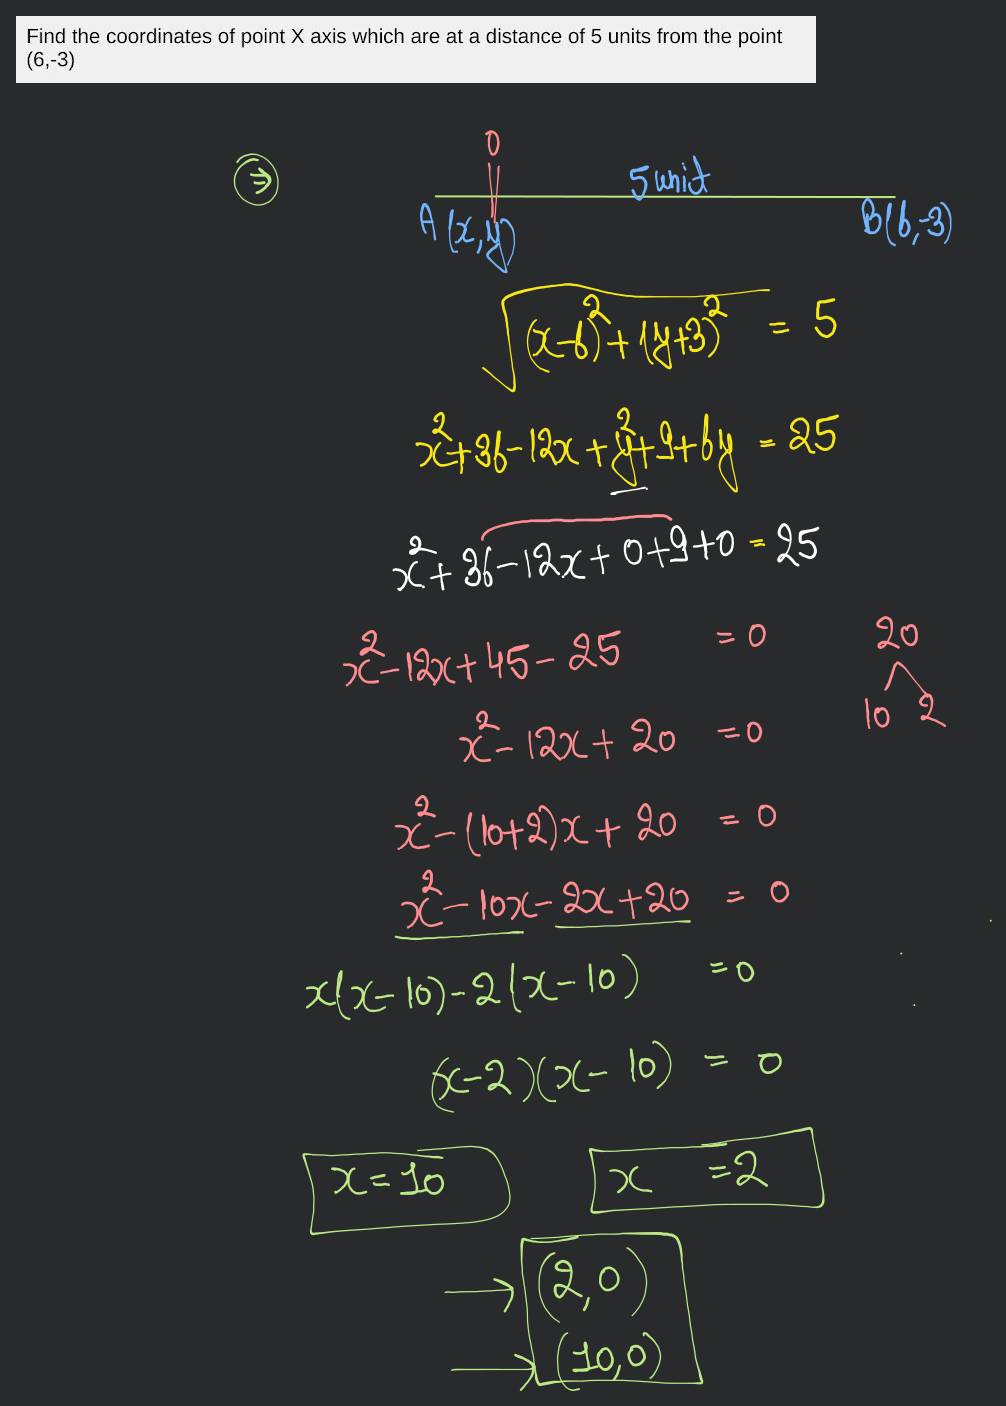 Find the coordinates of point X axis which are at a distance of 5 units from the point
(6,-3)
0
⇒ 5 unit
A (x,y) B(6,-3)
√((x-6)²+(y+3)²) = 5
x²+36-12x+y²+9+6y = 25
x²+36-12x+0+9+0 = 25
x²-12x+45-25 = 0
20
10 2
x²-12x+20 = 0
x²-(10+2)x+20 = 0
x²-10x-2x+20 = 0
x(x-10)-2(x-10) = 0
(x-2)(x-10) = 0
x=10 x =2
→ (2,0)
→ (10,0)